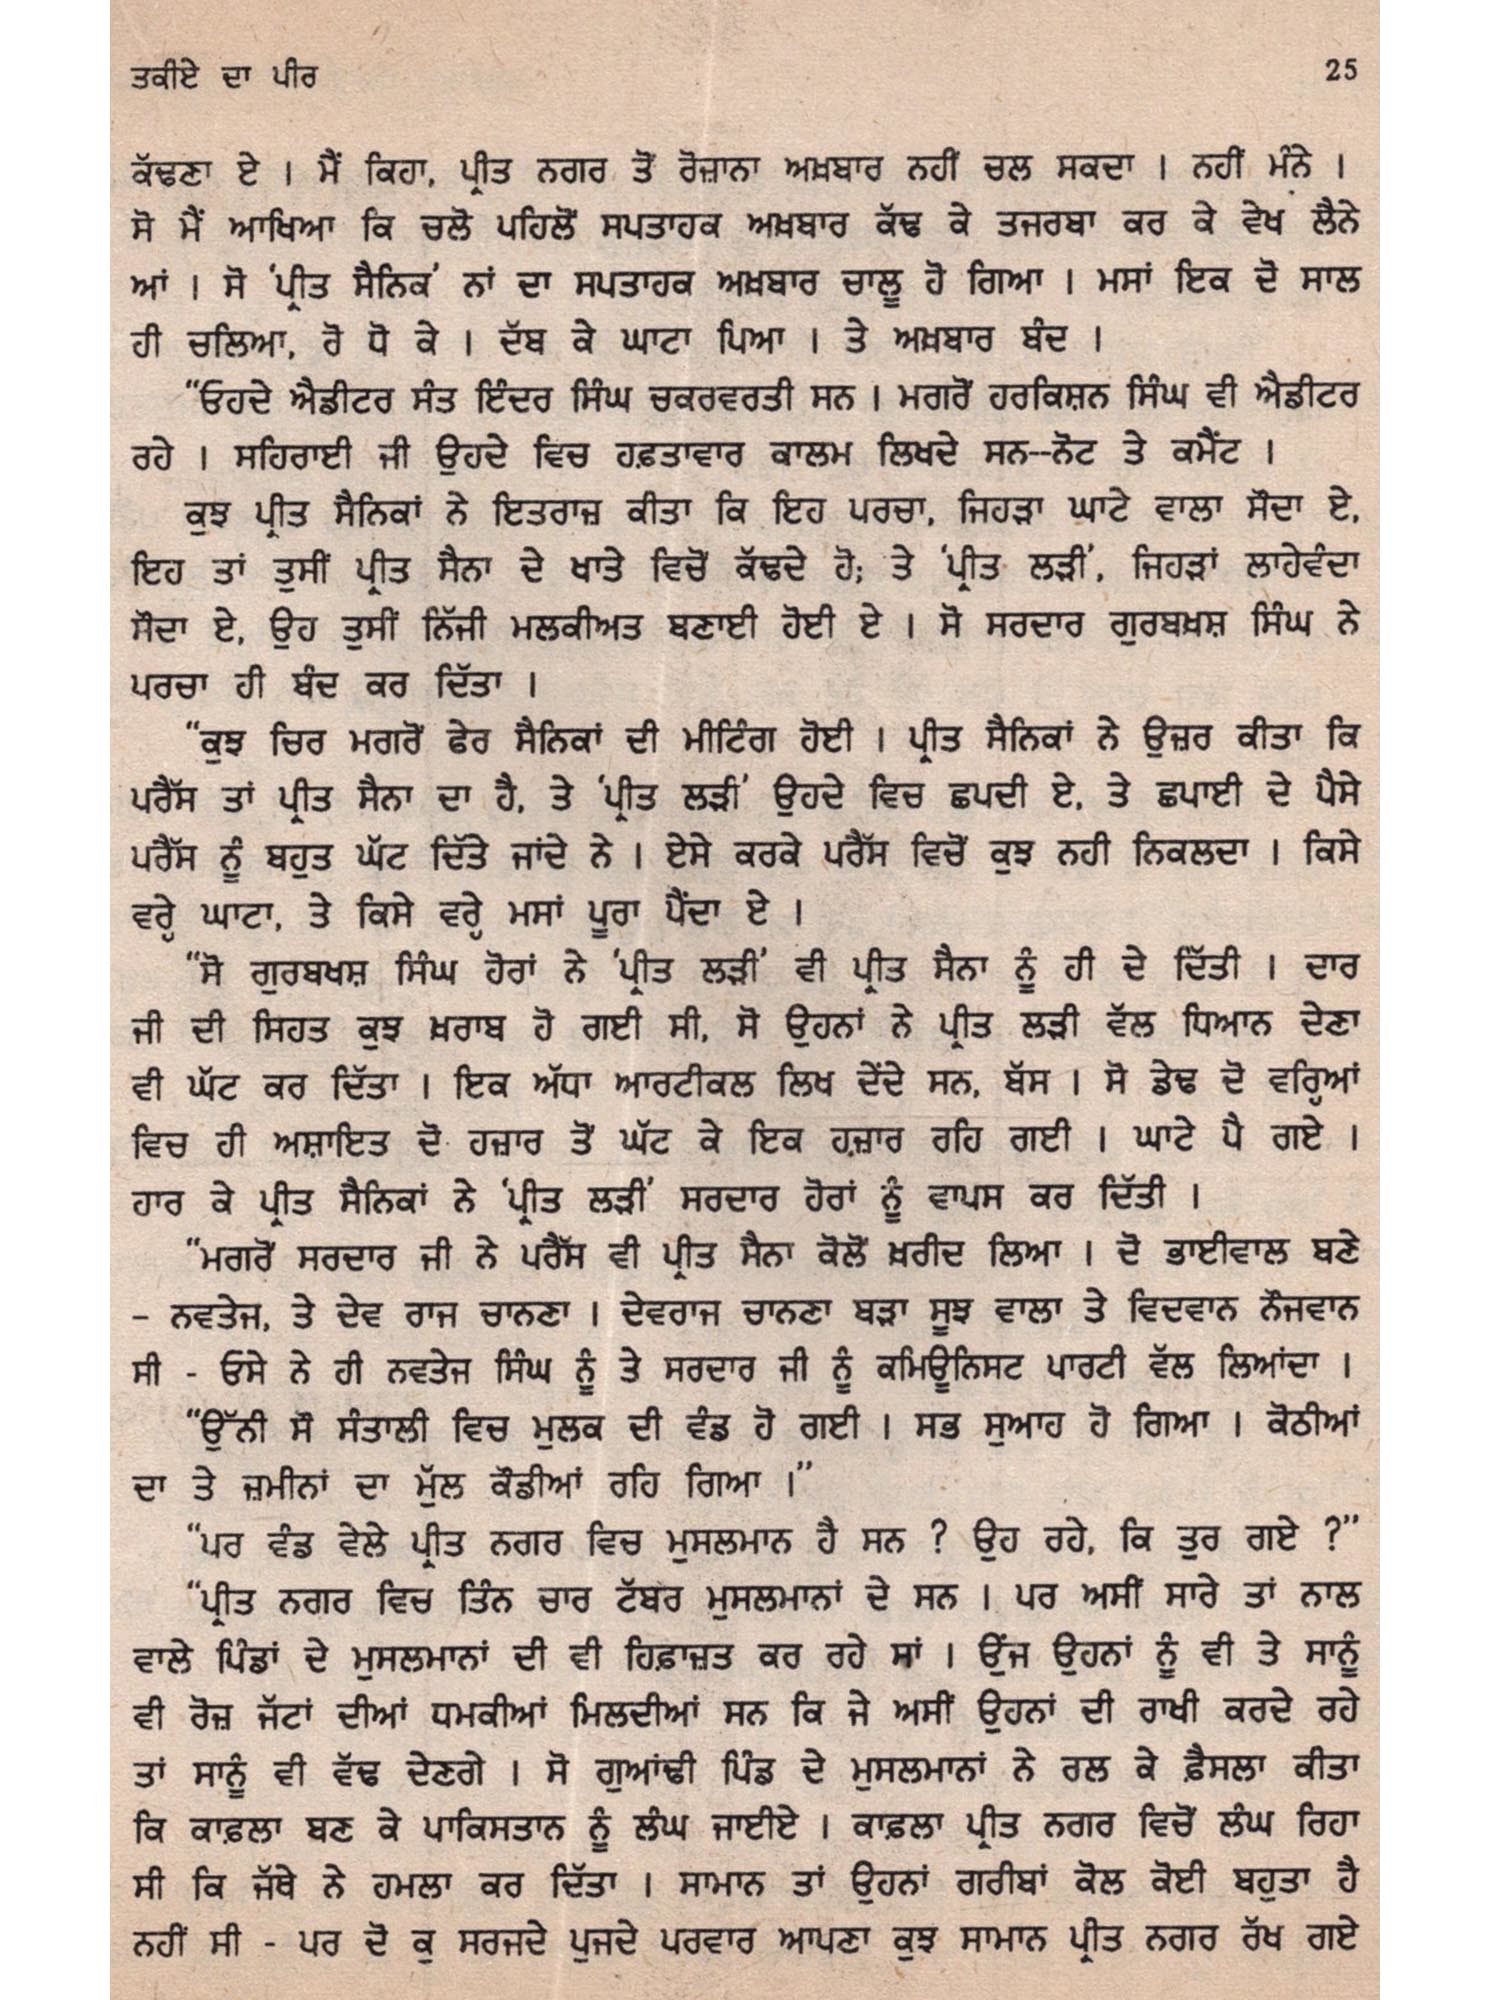 ਤਕੀਏ ਦਾ ਪੀਰ 25
ਕੱਢਣਾ ਏ । ਮੈਂ ਕਿਹਾ, ਪ੍ਰੀਤ ਨਗਰ ਤੋਂ ਰੋਜ਼ਾਨਾ ਅਖ਼ਬਾਰ ਨਹੀਂ ਚਲ ਸਕਦਾ । ਨਹੀਂ ਮੰਨੇ ।
ਸੋ ਮੈਂ ਆਖਿਆ ਕਿ ਚਲੋ ਪਹਿਲੋਂ ਸਪਤਾਹਕ ਅਖ਼ਬਾਰ ਕੱਢ ਕੇ ਤਜਰਬਾ ਕਰ ਕੇ ਵੇਖ ਲੈਨੇ
ਆਂ । ਸੋ ‘ਪ੍ਰੀਤ ਸੈਨਿਕ’ ਨਾਂ ਦਾ ਸਪਤਾਹਕ ਅਖ਼ਬਾਰ ਚਾਲੂ ਹੋ ਗਿਆ । ਮਸਾਂ ਇਕ ਦੋ ਸਾਲ
ਹੀ ਚਲਿਆ, ਰੋ ਧੋ ਕੇ । ਦੱਬ ਕੇ ਘਾਟਾ ਪਿਆ । ਤੇ ਅਖ਼ਬਾਰ ਬੰਦ ।
“ਓਹਦੇ ਐਡੀਟਰ ਸੰਤ ਇੰਦਰ ਸਿੰਘ ਚਕਰਵਰਤੀ ਸਨ । ਮਗਰੋਂ ਹਰਕਿਸ਼ਨ ਸਿੰਘ ਵੀ ਐਡੀਟਰ
ਰਹੇ । ਸਹਿਰਾਈ ਜੀ ਉਹਦੇ ਵਿਚ ਹਫ਼ਤਾਵਾਰ ਕਾਲਮ ਲਿਖਦੇ ਸਨ--ਨੋਟ ਤੇ ਕਮੈਂਟ ।
ਕੁਝ ਪ੍ਰੀਤ ਸੈਨਿਕਾਂ ਨੇ ਇਤਰਾਜ਼ ਕੀਤਾ ਕਿ ਇਹ ਪਰਚਾ, ਜਿਹੜਾ ਘਾਟੇ ਵਾਲਾ ਸੌਦਾ ਏ,
ਇਹ ਤਾਂ ਤੁਸੀਂ ਪ੍ਰੀਤ ਸੈਨਾ ਦੇ ਖਾਤੇ ਵਿਚੋਂ ਕੱਢਦੇ ਹੋ; ਤੇ ‘ਪ੍ਰੀਤ ਲੜੀ’, ਜਿਹੜਾਂ ਲਾਹੇਵੰਦਾ
ਸੌਦਾ ਏ, ਉਹ ਤੁਸੀਂ ਨਿੱਜੀ ਮਲਕੀਅਤ ਬਣਾਈ ਹੋਈ ਏ । ਸੋ ਸਰਦਾਰ ਗੁਰਬਖ਼ਸ਼ ਸਿੰਘ ਨੇ
ਪਰਚਾ ਹੀ ਬੰਦ ਕਰ ਦਿੱਤਾ ।
“ਕੁਝ ਚਿਰ ਮਗਰੋਂ ਫੇਰ ਸੈਨਿਕਾਂ ਦੀ ਮੀਟਿੰਗ ਹੋਈ । ਪ੍ਰੀਤ ਸੈਨਿਕਾਂ ਨੇ ਉਜ਼ਰ ਕੀਤਾ ਕਿ
ਪਰੈੱਸ ਤਾਂ ਪ੍ਰੀਤ ਸੈਨਾ ਦਾ ਹੈ, ਤੇ ‘ਪ੍ਰੀਤ ਲੜੀ’ ਉਹਦੇ ਵਿਚ ਛਪਦੀ ਏ, ਤੇ ਛਪਾਈ ਦੇ ਪੈਸੇ
ਪਰੈੱਸ ਨੂੰ ਬਹੁਤ ਘੱਟ ਦਿੱਤੇ ਜਾਂਦੇ ਨੇ । ਏਸੇ ਕਰਕੇ ਪਰੈੱਸ ਵਿਚੋਂ ਕੁਝ ਨਹੀ ਨਿਕਲਦਾ । ਕਿਸੇ
ਵਰ੍ਹੇ ਘਾਟਾ, ਤੇ ਕਿਸੇ ਵਰ੍ਹੇ ਮਸਾਂ ਪੂਰਾ ਪੈਂਦਾ ਏ ।
“ਸੋ ਗੁਰਬਖਸ਼ ਸਿੰਘ ਹੋਰਾਂ ਨੇ ‘ਪ੍ਰੀਤ ਲੜੀ’ ਵੀ ਪ੍ਰੀਤ ਸੈਨਾ ਨੂੰ ਹੀ ਦੇ ਦਿੱਤੀ । ਦਾਰ
ਜੀ ਦੀ ਸਿਹਤ ਕੁਝ ਖ਼ਰਾਬ ਹੋ ਗਈ ਸੀ, ਸੋ ਉਹਨਾਂ ਨੇ ਪ੍ਰੀਤ ਲੜੀ ਵੱਲ ਧਿਆਨ ਦੇਣਾ
ਵੀ ਘੱਟ ਕਰ ਦਿੱਤਾ । ਇਕ ਅੱਧਾ ਆਰਟੀਕਲ ਲਿਖ ਦੇਂਦੇ ਸਨ, ਬੱਸ । ਸੋ ਡੇਢ ਦੋ ਵਰ੍ਹਿਆਂ
ਵਿਚ ਹੀ ਅਸ਼ਾਇਤ ਦੋ ਹਜ਼ਾਰ ਤੋਂ ਘੱਟ ਕੇ ਇਕ ਹਜ਼ਾਰ ਰਹਿ ਗਈ । ਘਾਟੇ ਪੈ ਗਏ ।
ਹਾਰ ਕੇ ਪ੍ਰੀਤ ਸੈਨਿਕਾਂ ਨੇ ‘ਪ੍ਰੀਤ ਲੜੀ’ ਸਰਦਾਰ ਹੋਰਾਂ ਨੂੰ ਵਾਪਸ ਕਰ ਦਿੱਤੀ ।
“ਮਗਰੋਂ ਸਰਦਾਰ ਜੀ ਨੇ ਪਰੈੱਸ ਵੀ ਪ੍ਰੀਤ ਸੈਨਾ ਕੋਲੋਂ ਖ਼ਰੀਦ ਲਿਆ । ਦੋ ਭਾਈਵਾਲ ਬਣੇ
– ਨਵਤੇਜ, ਤੇ ਦੇਵ ਰਾਜ ਚਾਨਣਾ । ਦੇਵਰਾਜ ਚਾਨਣਾ ਬੜਾ ਸੂਝ ਵਾਲਾ ਤੇ ਵਿਦਵਾਨ ਨੌਜਵਾਨ
ਸੀ - ਓਸੇ ਨੇ ਹੀ ਨਵਤੇਜ ਸਿੰਘ ਨੂੰ ਤੇ ਸਰਦਾਰ ਜੀ ਨੂੰ ਕਮਿਊਨਿਸਟ ਪਾਰਟੀ ਵੱਲ ਲਿਆਂਦਾ ।
“ਉੱਨੀ ਸੌ ਸੰਤਾਲੀ ਵਿਚ ਮੁਲਕ ਦੀ ਵੰਡ ਹੋ ਗਈ । ਸਭ ਸੁਆਹ ਹੋ ਗਿਆ । ਕੋਠੀਆਂ
ਦਾ ਤੇ ਜ਼ਮੀਨਾਂ ਦਾ ਮੁੱਲ ਕੌਡੀਆਂ ਰਹਿ ਗਿਆ ।”
“ਪਰ ਵੰਡ ਵੇਲੇ ਪ੍ਰੀਤ ਨਗਰ ਵਿਚ ਮੁਸਲਮਾਨ ਹੈ ਸਨ ? ਉਹ ਰਹੇ, ਕਿ ਤੁਰ ਗਏ ?”
“ਪ੍ਰੀਤ ਨਗਰ ਵਿਚ ਤਿੰਨ ਚਾਰ ਟੱਬਰ ਮੁਸਲਮਾਨਾਂ ਦੇ ਸਨ । ਪਰ ਅਸੀਂ ਸਾਰੇ ਤਾਂ ਨਾਲ
ਵਾਲੇ ਪਿੰਡਾਂ ਦੇ ਮੁਸਲਮਾਨਾਂ ਦੀ ਵੀ ਹਿਫ਼ਾਜ਼ਤ ਕਰ ਰਹੇ ਸਾਂ । ਉਂਜ ਉਹਨਾਂ ਨੂੰ ਵੀ ਤੇ ਸਾਨੂੰ
ਵੀ ਰੋਜ਼ ਜੱਟਾਂ ਦੀਆਂ ਧਮਕੀਆਂ ਮਿਲਦੀਆਂ ਸਨ ਕਿ ਜੇ ਅਸੀਂ ਉਹਨਾਂ ਦੀ ਰਾਖੀ ਕਰਦੇ ਰਹੇ
ਤਾਂ ਸਾਨੂੰ ਵੀ ਵੱਢ ਦੇਣਗੇ । ਸੋ ਗੁਆਂਢੀ ਪਿੰਡ ਦੇ ਮੁਸਲਮਾਨਾਂ ਨੇ ਰਲ ਕੇ ਫ਼ੈਸਲਾ ਕੀਤਾ
ਕਿ ਕਾਫ਼ਲਾ ਬਣ ਕੇ ਪਾਕਿਸਤਾਨ ਨੂੰ ਲੰਘ ਜਾਈਏ । ਕਾਫ਼ਲਾ ਪ੍ਰੀਤ ਨਗਰ ਵਿਚੋਂ ਲੰਘ ਰਿਹਾ
ਸੀ ਕਿ ਜੱਥੇ ਨੇ ਹਮਲਾ ਕਰ ਦਿੱਤਾ । ਸਾਮਾਨ ਤਾਂ ਉਹਨਾਂ ਗਰੀਬਾਂ ਕੋਲ ਕੋਈ ਬਹੁਤਾ ਹੈ
ਨਹੀਂ ਸੀ - ਪਰ ਦੋ ਕੁ ਸਰਜਦੇ ਪੁਜਦੇ ਪਰਵਾਰ ਆਪਣਾ ਕੁਝ ਸਾਮਾਨ ਪ੍ਰੀਤ ਨਗਰ ਰੱਖ ਗਏ